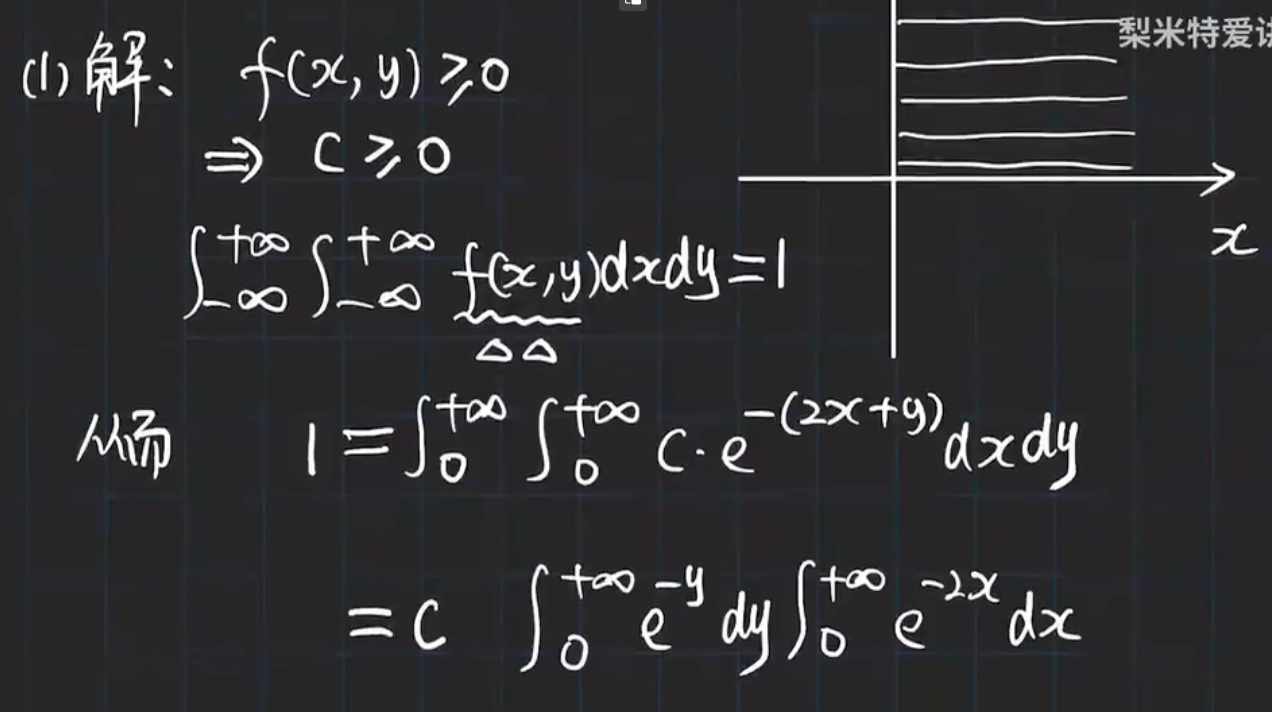 梨米特爱讲
(1) 解: f(x, y) ≥ 0
⇒ C ≥ 0
∫_{-∞}^{+∞} ∫_{-∞}^{+∞} f(x,y)dxdy = 1
△△
x
从而 1 = ∫_0^{+∞} ∫_0^{+∞} C·e^{-(2x+y)} dxdy
= C ∫_0^{+∞} e^{-y} dy ∫_0^{+∞} e^{-2x} dx